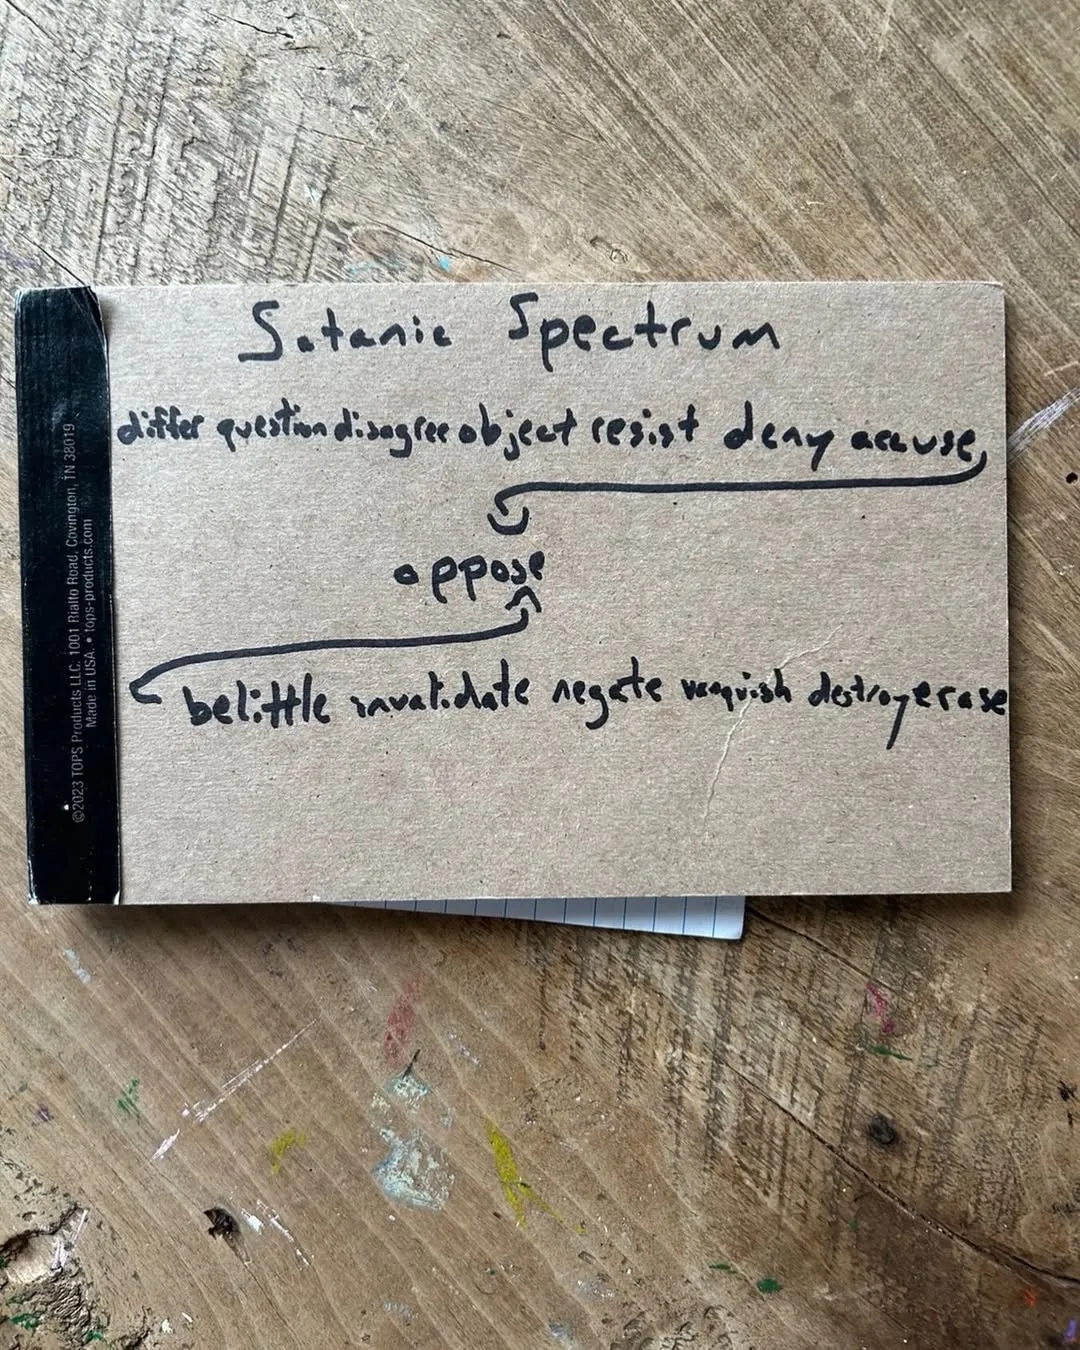 Satanic Spectrum
differ question disagree object resist deny accuse
oppose
belittle invalidate negate vanquish destroy erase
©2023 TOPS Products LLC. 1001 Rialto Road, Covington, TN 38019
Made in USA. • tops-products.com